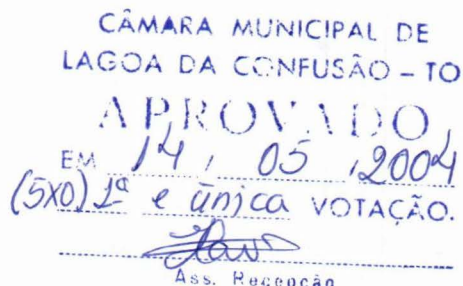 CÂMARA MUNICIPAL DE
LAGOA DA CONFUSÃO – TO
APROVADO
EM 14 / 05 / 2004
(5X0) 1ª e única VOTAÇÃO.
Ass. Recepção